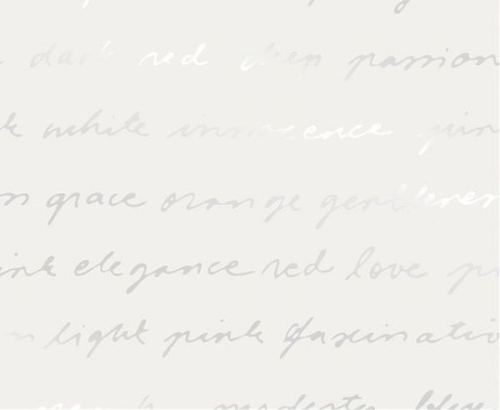 dark red deep passion
white innocence
grace orange gentlenes
ink elegance red love
light pink fascinatio
modesty blue